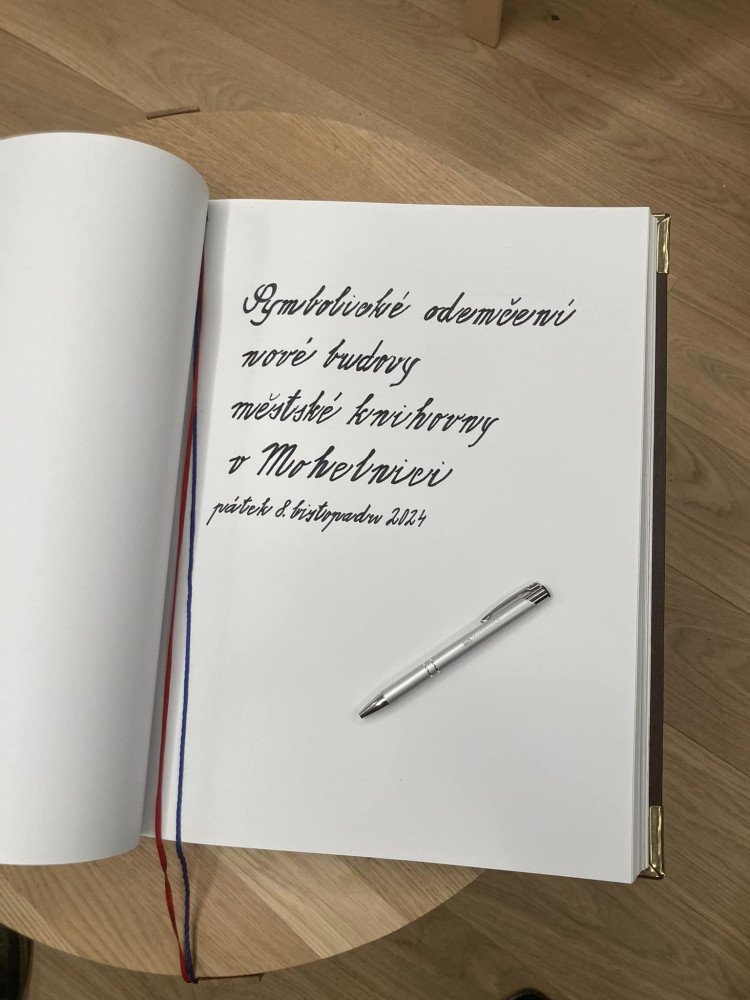 Symbolické odemčení
nové budovy
městské knihovny
v Mohelnici
pátek 8. listopadu 2024